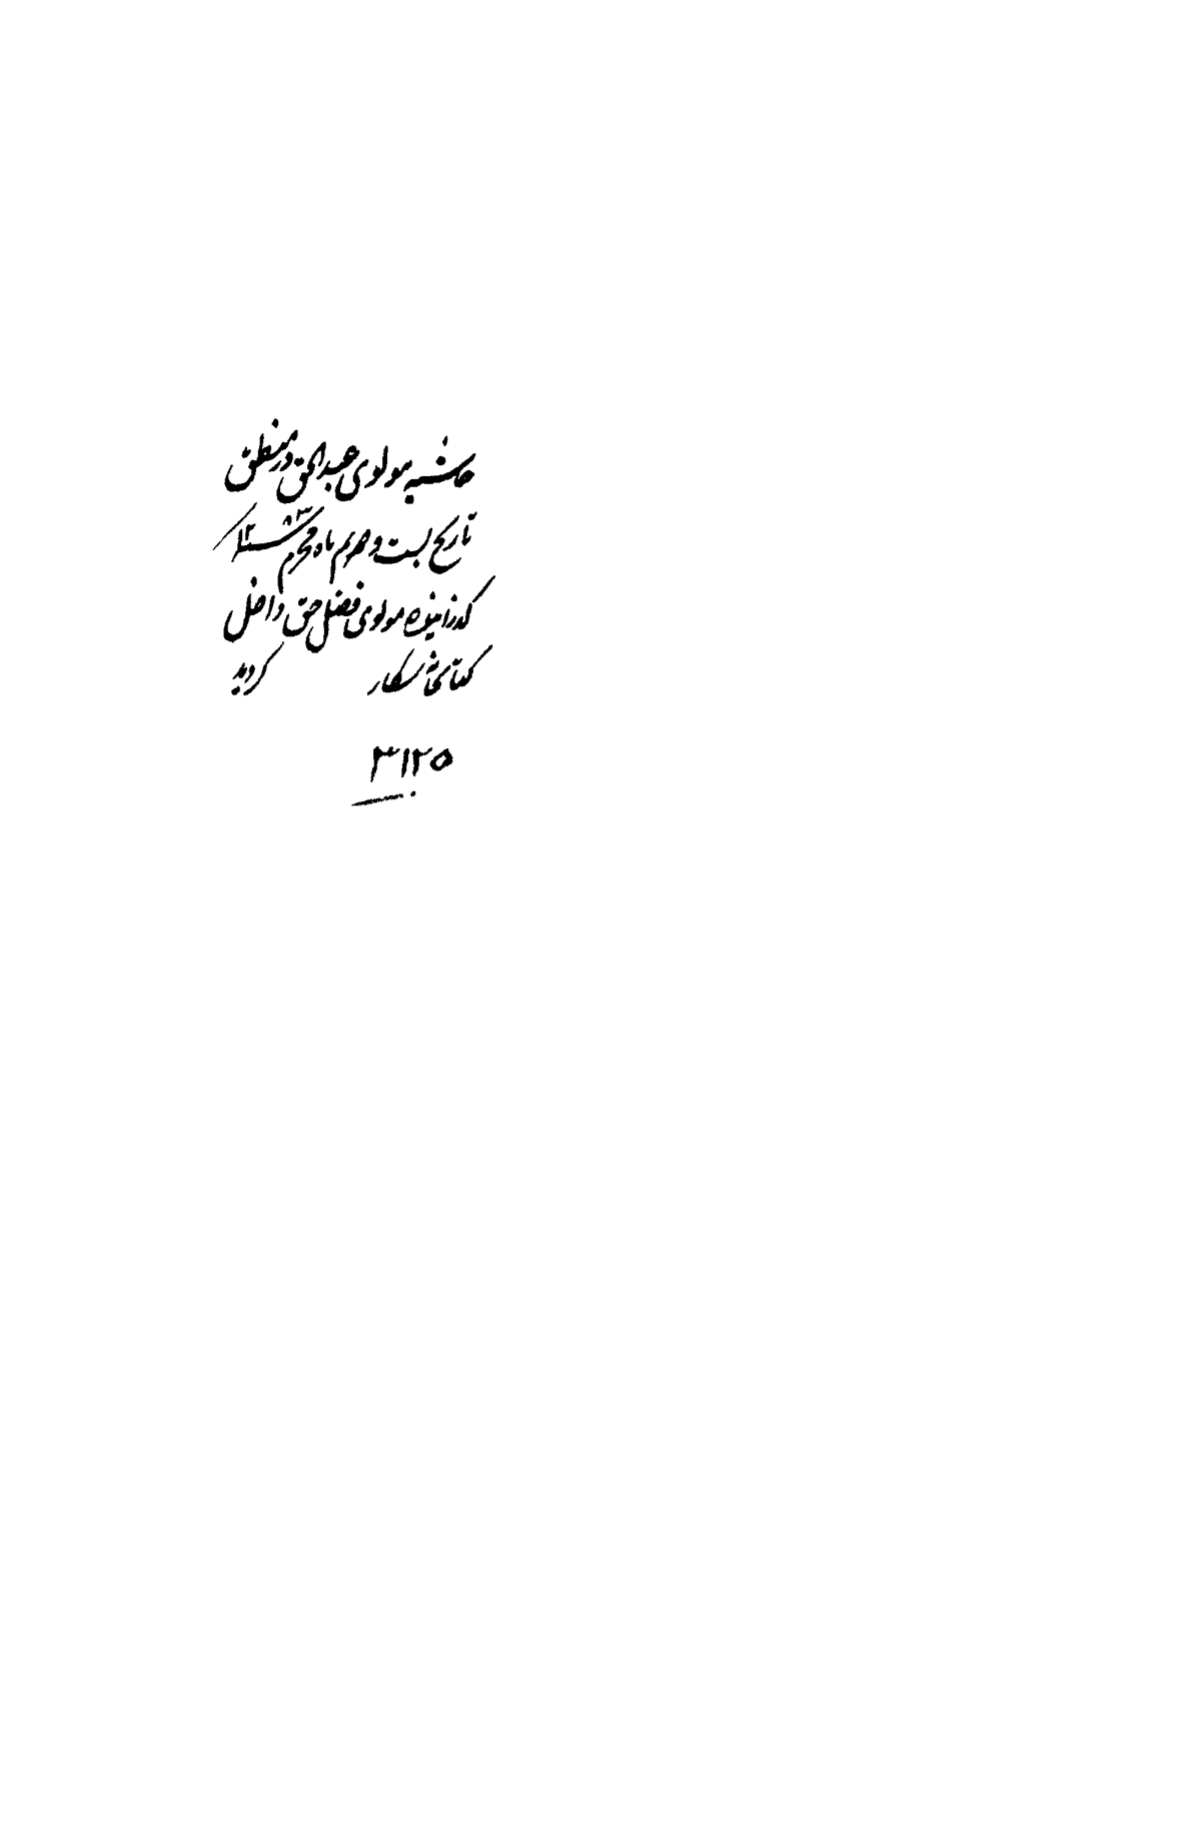 حاشیه مولوی عبدالحق در منطق
تاریخ بست و ماه محرم ۱۲۸۳
گذرانیده مولوی فضل حق داخل
کتابخانه سرکار گردید
۳۱۲۵